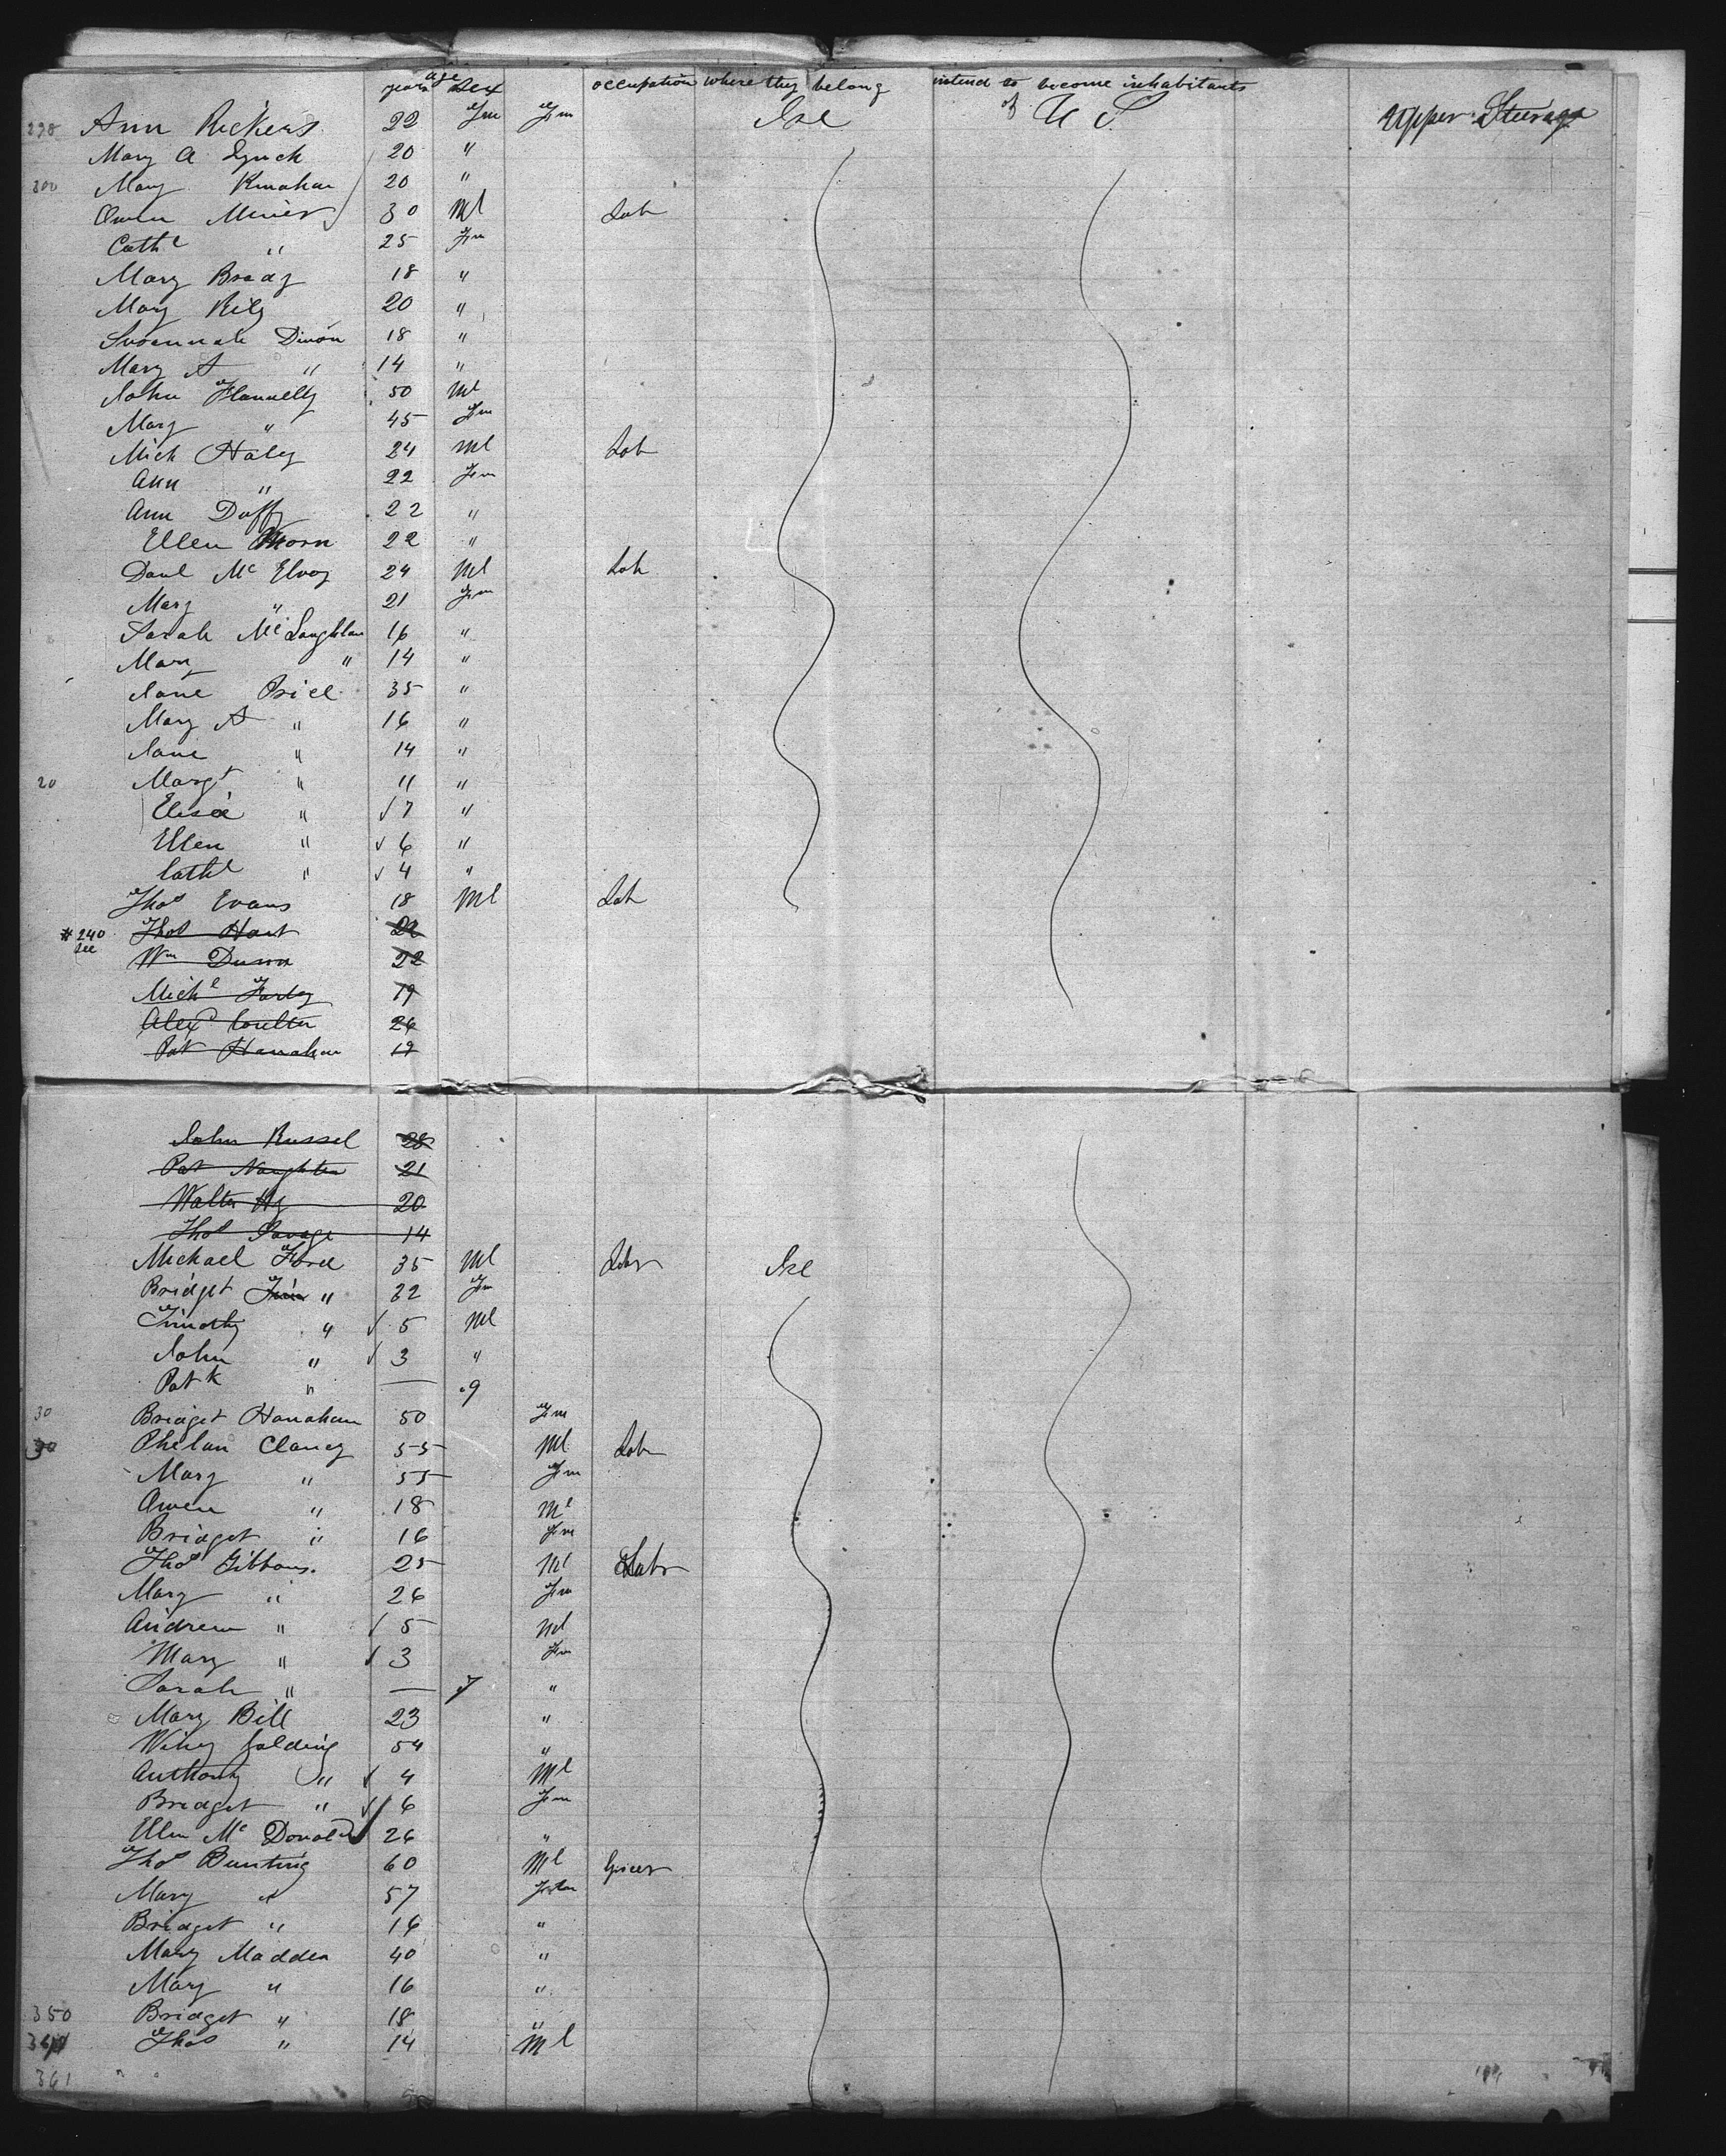 years age Sex occupation where they belong intend to become inhabitants
298 Ann Rickers 22 Fm Fm Ire of U S Upper Steerage
Mary A Lynch 20 "
300 Mary Kinahan 20 "
Owen 30 Ml Lab
Cathe " 25 Fm
Mary Brady 18 "
Mary Rily 20 "
Susannah 18 "
Mary A " 14 "
John Flannelly 50 Ml
Mary " 45 Fm
Mich Haley 24 Ml Lab
Ann " 22 Fm
Ann Duffy 22 "
Ellen 22 "
Danl Mc Elvoy 24 Ml Lab
Mary " 21 Fm
Sarah Mc Laughlan 16 "
Mary " 14 "
Jane Price 35 "
Mary A " 16 "
Jane " 14 "
20 Margt " 11 "
Elisa " ✓ 7 "
Ellen " ✓ 6 "
Cathe " ✓ 4 "
Thos Evans 18 Ml Lab
# 240 Thos Hart 22
see Wm Dunn 22
Michl Farley 19
Alexr Coulter 26
Pat Hanahan 19
John Russel 28
Pat Naughten 21
Walter 20
Thos Savage 14
Michael Ford 35 Ml Labr Ire
Bridget " 32 Fm
Timothy " ✓ 5 Ml
John " ✓ 3 "
Patk " — 9
30 Bridget Hanahan 50 Fm
30 Phelan Clancy 55 Ml Labr
Mary " 55 Fm
Owen " 18 Ml
Bridget " 16 Fm
Thos Gibbons. 25 Ml Labr
Mary " 26 Fm
Andrew " ✓ 5 Ml
Mary " ✓ 3 Fm
Sarah " — 7 "
Mary Bill 23 "
Winy Golding 54 "
Anthony " ✓ 4 Ml
Bridget " ✓ 6 Fm
Ellen Mc Donald 26 "
Thos Bunting 60 Ml
Mary " 57 Fm
Bridget " 16 "
Mary Madden 40 "
Mary " 16 "
350 Bridget " 18 "
Thos " 14 Ml
361